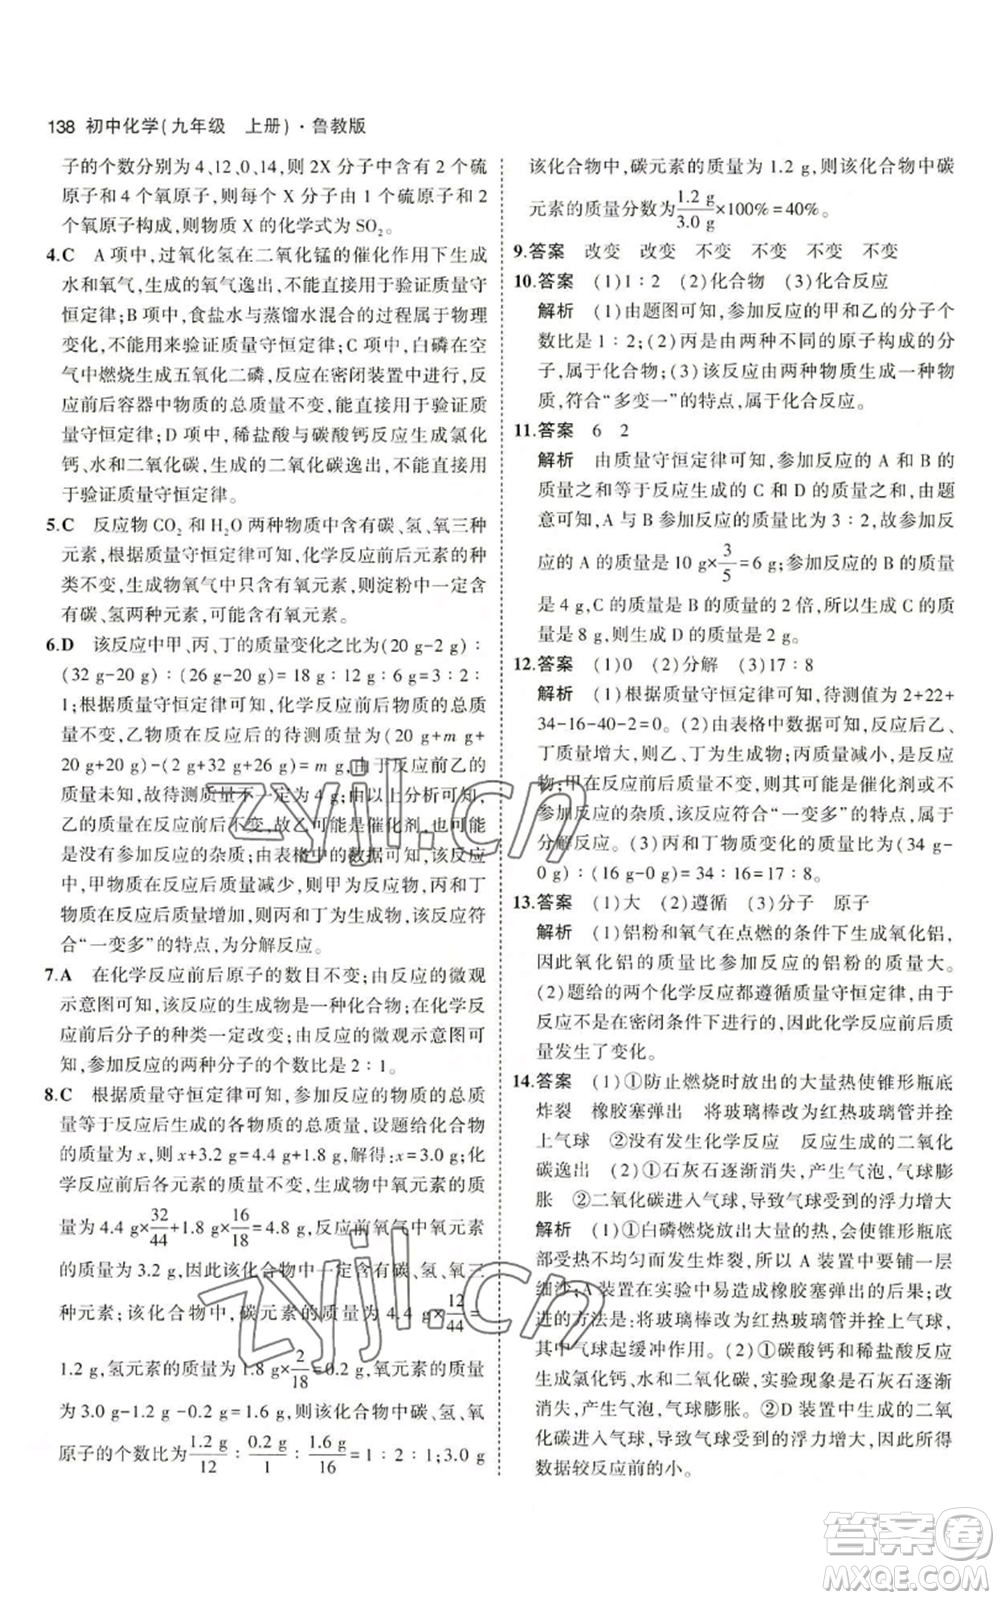 138 初中化学(九年级　上册)·鲁教版
子的个数分别为 4、12、0、14,则 2X 分子中共含有 2 个硫
原子和 4 个氧原子,则每个 X 分子由 1 个硫原子和 2
个氧原子构成,则物质 X 的化学式为 SO₂。
4.C A 项中,过氧化氢在二氧化锰的催化作用下生成
水和氧气,生成的氧气逸出,不能直接用于验证质量守
恒定律;B 项中,食盐水与蒸馏水混合的过程属于物理
变化,不能用来验证质量守恒定律;C 项中,白磷在空
气中燃烧生成五氧化二磷,反应在密闭装置中进行,
反应前后容器中物质的总质量不变,能直接用于验证质
量守恒定律;D 项中,稀盐酸与碳酸钙反应生成氯化
钙、水和二氧化碳,生成的二氧化碳逸出,不能直接用
于验证质量守恒定律。
5.C 反应物 CO₂ 和 H₂O 两种物质中含有碳、氢、氧三种
元素,根据质量守恒定律可知,化学反应前后元素的种
类不变,生成物氧气中只含有氧元素,则淀粉中一定含
有碳、氢两种元素,可能含有氧元素。
6.D 该反应中甲、丙、丁的质量变化之比为(20 g-2 g)∶
(32 g-20 g)∶(26 g-20 g)= 18 g∶12 g∶6 g = 3∶2∶
1;根据质量守恒定律可知,化学反应前后物质的总质
量不变,乙物质在反应后的待测质量为(20 g+m g+
20 g+20 g)-(2 g+32 g+26 g)= m g,由于反应前乙的
质量未知,故待测质量不一定为 4 g;由以上分析可知,
乙的质量在反应前后不变,故乙可能是催化剂,也可能
是该反应的杂质;由表格中的数据可知,该反应
中,甲物质在反应后质量减少,则甲为反应物,丙和丁
物质在反应后质量增加,则丙和丁为生成物,该反应符
合“一变多”的特点,为分解反应。
7.A 在化学反应前后原子的数目不变;由反应的微观
示意图可知,该反应的生成物是一种化合物;在化学反
应前后分子的种类一定改变;由反应的微观示意图可
知,参加反应的两种分子的个数比是 2∶1。
8.C 根据质量守恒定律可知,参加反应的物质的总质
量等于反应后生成的各物质的总质量,设题给化合物
的质量为 x,则 x+3.2 g=4.4 g+1.8 g,解得:x=3.0 g;化
学反应前后各元素的质量不变,生成物中氧元素的质
量为 4.4 g×32/44+1.8 g×16/18=4.8 g,反应前氧气中氧元素
的质量为 3.2 g,因此该化合物中一定含有碳、氢、氧三
种元素;该化合物中,碳元素的质量为 4.4 g×12/44=
1.2 g,氢元素的质量为 1.8 g×2/18=0.2 g,氧元素的质量
为 3.0 g-1.2 g-0.2 g=1.6 g,则该化合物中碳、氢、氧
原子的个数比为 1.2 g/12∶0.2 g/1∶1.6 g/16=1∶2∶1;3.0 g
该化合物中,碳元素的质量为 1.2 g,则该化合物中碳
元素的质量分数为 1.2 g/3.0 g×100%=40%。
9.答案 改变 改变 不变 不变 不变 不变
10.答案 (1)1∶2 (2)化合物 (3)化合反应
解析 (1)由题图可知,参加反应的甲和乙的分子个
数比是 1∶2;(2)丙是由两种不同的原子构成的分
子,属于化合物;(3)该反应由两种物质生成一种物
质,符合“多变一”的特点,属于化合反应。
11.答案 6 2
解析 由质量守恒定律可知,参加反应的 A 和 B 的
质量之和等于反应生成的 C 和 D 的质量之和,由题
意可知,A 与 B 参加反应的质量比为 3∶2,故参加反
应的 A 的质量是 10 g×3/5=6 g;参加反应的 B 的质量
是 4 g,C 的质量是 B 的质量的 2 倍,所以生成 C 的质
量是 8 g,则生成 D 的质量是 2 g。
12.答案 (1)0 (2)分解 (3)17∶8
解析 (1)根据质量守恒定律可知,待测值为 2+22+
34-16-40-2=0。(2)由表格中数据可知,反应后乙、
丁质量增大,则乙、丁为生成物;丙质量减小,是反应
物;甲在反应前后质量不变,则其可能是催化剂或不
参加反应的杂质,该反应符合“一变多”的特点,属于
分解反应。(3)丙和丁物质的质量变化的比为(34 g-
0 g)∶(16 g-0 g)= 34∶16=17∶8。
13.答案 (1)大 (2)遵循 (3)分子 原子
解析 (1)铝粉和氧气在点燃的条件下生成氧化铝,
因此氧化铝的质量比参加反应的铝粉的质量大。
(2)题给的两个化学反应都遵循质量守恒定律,由于
反应不是在密闭条件下进行的,因此化学反应前后质
量发生了变化。
14.答案 (1)①防止燃烧时放出的大量热使锥形瓶底
炸裂 橡胶塞弹出 将玻璃棒改为红热玻璃管并拴
上气球 ②没有发生化学反应 反应生成的二氧化
碳逸出 (2)①石灰石逐渐消失,产生气泡,气球膨
胀 ②二氧化碳进入气球,导致气球受到的浮力增大
解析 (1)①白磷燃烧放出大量的热,会使锥形瓶底
部受热不均匀而发生炸裂,所以 A 装置中要铺一层
细沙;A 装置在实验中易造成橡胶塞弹出的后果;改
进的方法是:将玻璃棒改为红热玻璃管并拴上气球,
其中气球起缓冲作用。(2)①碳酸钙和稀盐酸反应
生成氯化钙、水和二氧化碳,实验现象是石灰石逐渐
消失,产生气泡,气球膨胀。②D 装置中生成的二氧
化碳进入气球,导致气球受到的浮力增大,所以所得
数据较反应前的小。
zyjl.cn
zyjl.cn
答案圈
MXQE.COM